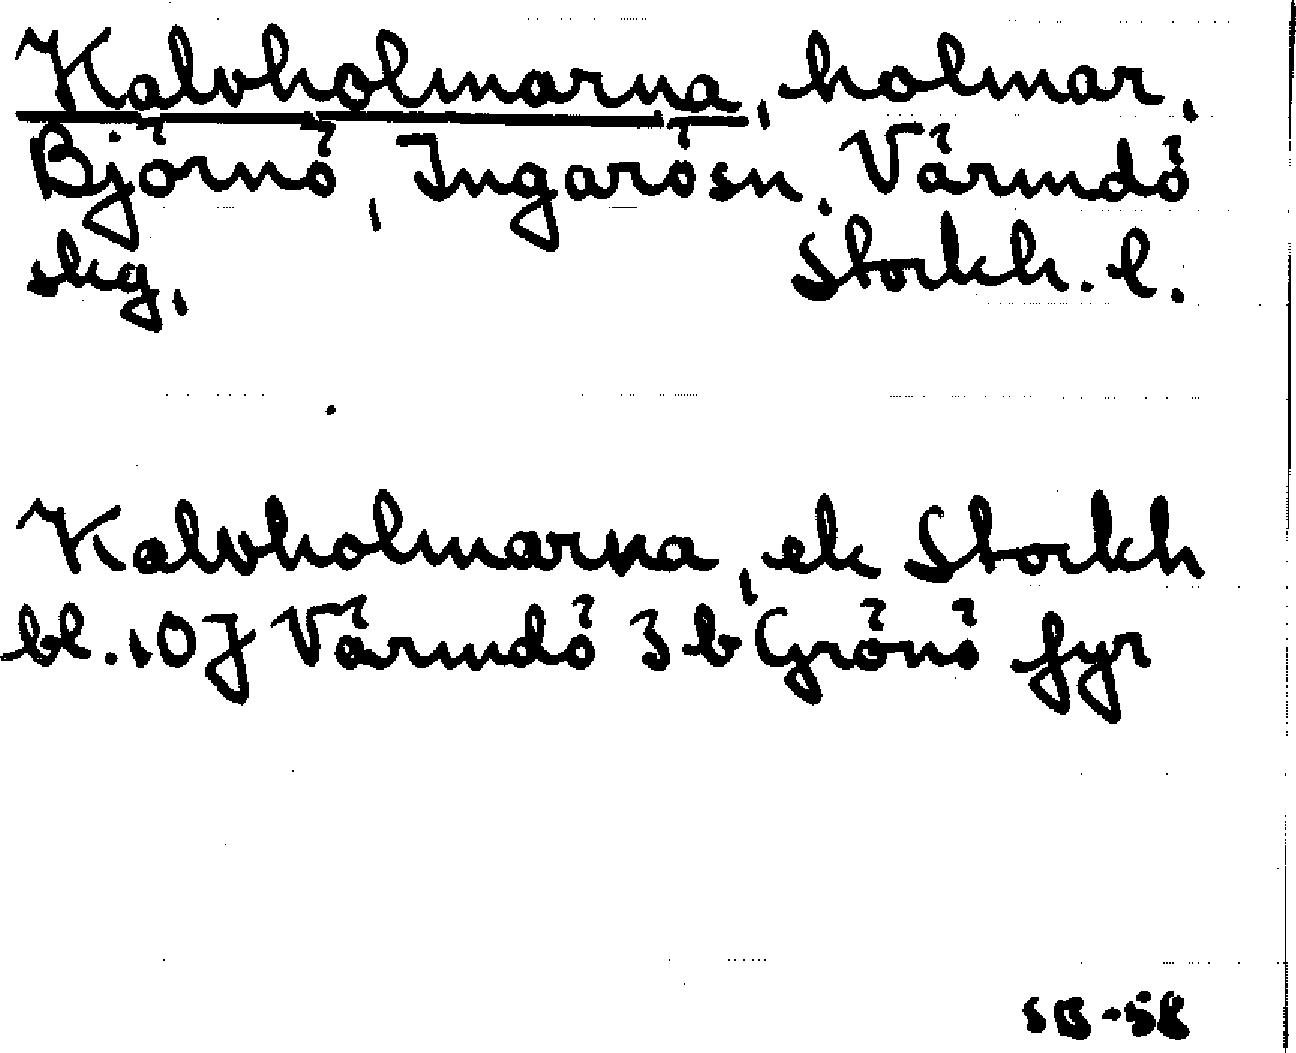 Kalvholmarna, holmar,
Björnö, Ingarösn. Värmdö
skg, Stockh. l.
Kalvholmarna, ek Stockh
bl. 107 Värmdö 3 b Grönö fyr
SB-58